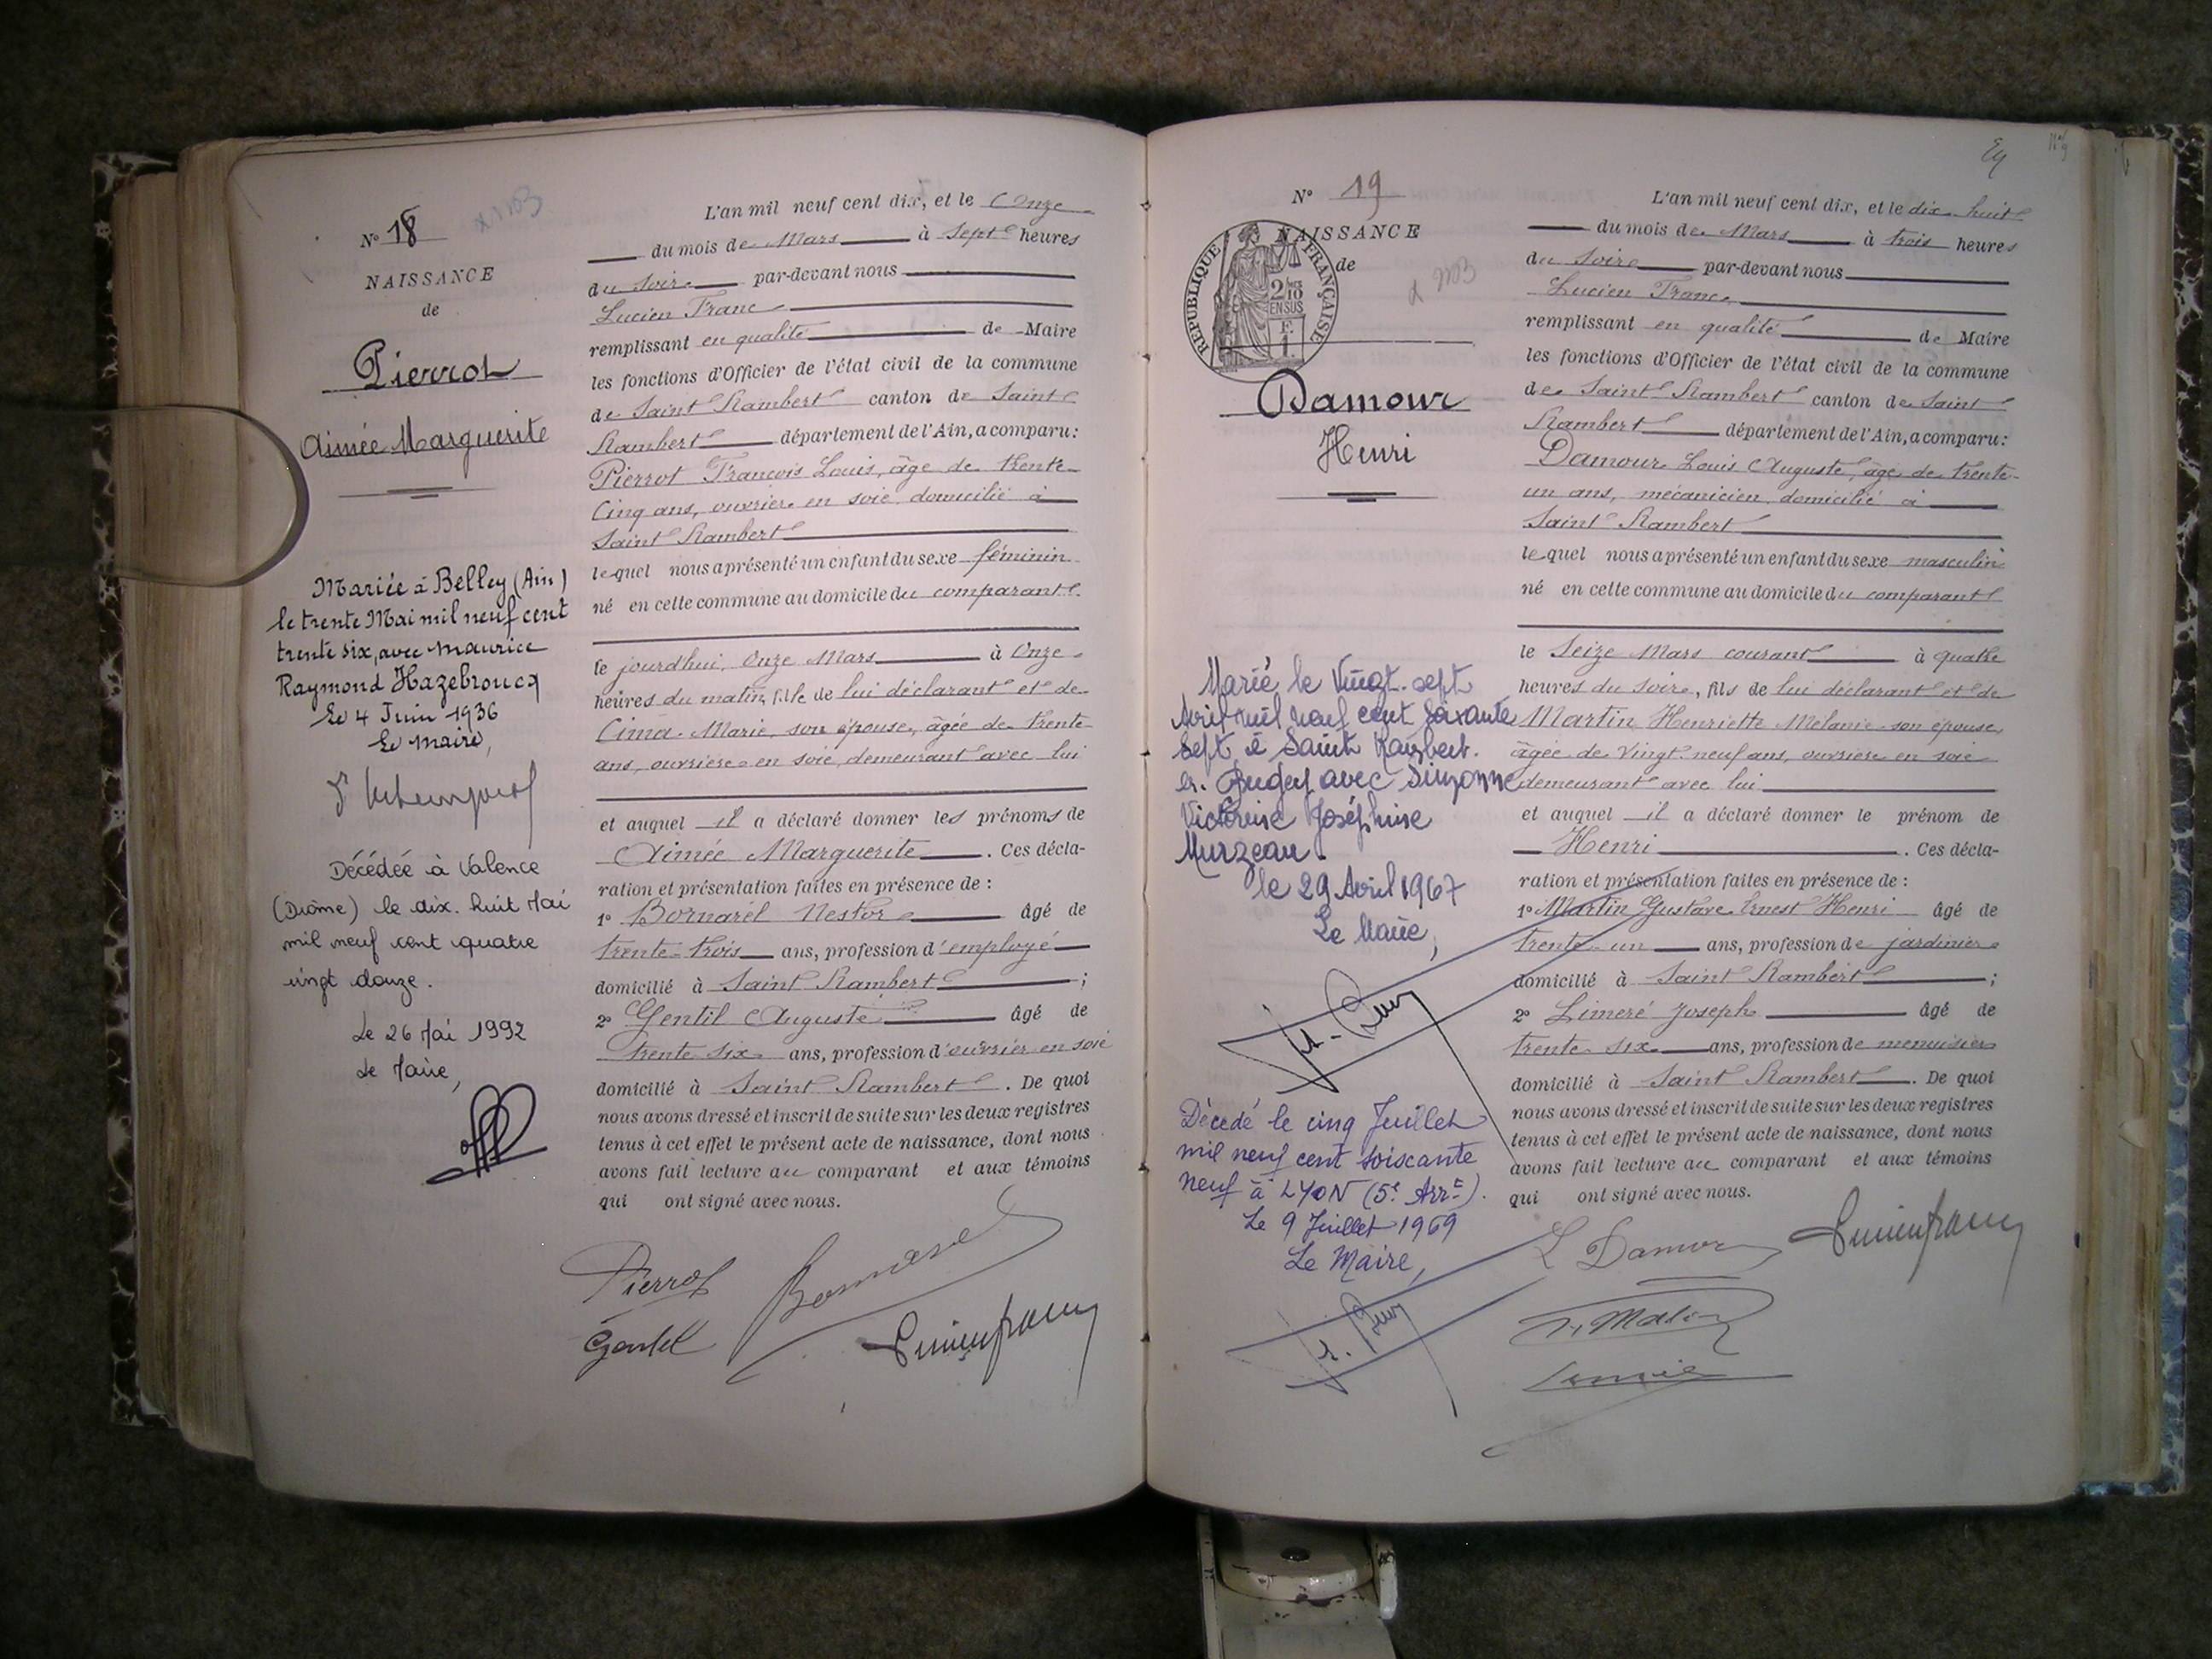 N° 18
NAISSANCE
de
Pierrot
Aimée Marguerite
Mariée à Belley (Ain)
le trente Mai mil neuf cent
trente six, avec Maurice
Raymond Hazebroucq
Le 4 Juin 1936
Le Maire,
Décédée à Valence
(Drôme) le dix. huit Mai
mil neuf cent quatre
vingt douze.
Le 26 Mai 1992
Le Maire,
L'an mil neuf cent dix, et le Onze
du mois de Mars à Sept heures
du soir par-devant nous
Lucien Franc
remplissant en qualité de Maire
les fonctions d'Officier de l'état civil de la commune
de Saint Rambert canton de Saint
Rambert département de l'Ain, a comparu :
Pierrot François Louis, âgé de trente
Cinq ans, ouvrier en soie domicilié à
Saint Rambert
lequel nous a présenté un enfant du sexe féminin
né en cette commune au domicile du comparant
le jourdhui, Onze Mars à Onze
heures du matin, fille de lui déclarant et de
Cima Marie, son épouse, âgée de trente
ans, ouvrière en soie, demeurant avec lui
et auquel il a déclaré donner les prénoms de
Aimée Marguerite. Ces décla-
ration et présentation faites en présence de :
1° Bornarel Nestor âgé de
trente-trois ans, profession d'employé
domicilié à Saint Rambert ;
2° Gentil Auguste âgé de
trente six ans, profession d'ouvrier en soie
domicilié à Saint Rambert. De quoi
nous avons dressé et inscrit de suite sur les deux registres
tenus à cet effet le présent acte de naissance, dont nous
avons fait lecture au comparant et aux témoins
qui ont signé avec nous.
Pierrot Bornarel
Gentil Lucien franc
N° 19
NAISSANCE
de
RÉPUBLIQUE FRANÇAISE
2/10
EN SUS
F.
1.
Damour
Henri
Marié le Vingt. sept
Avril mil neuf cent soixante
sept, à Saint Rambert.
en. Bugey avec Suzanne
Victorine Joséphine
Murzeau.
le 29 Avril 1967
Le Maire,
Décédé le cinq Juillet
mil neuf cent soixante
neuf à LYON (5e Arrt).
Le 9 Juillet 1969
Le Maire,
L'an mil neuf cent dix, et le dix huit
du mois de Mars à trois heures
du soir par-devant nous
Lucien Franc
remplissant en qualité de Maire
les fonctions d'Officier de l'état civil de la commune
de Saint Rambert canton de Saint
Rambert département de l'Ain, a comparu :
Damour Louis Auguste, âgé de trente-
un ans, mécanicien, domicilié à
Saint Rambert
lequel nous a présenté un enfant du sexe masculin
né en cette commune au domicile du comparant
le Seize Mars courant à quatre
heures du soir, fils de lui déclarant et de
Martin Henriette Mélanie son épouse,
âgée de Vingt neuf ans, ouvrière en soie
demeurant avec lui
et auquel il a déclaré donner le prénom de
Henri. Ces décla-
ration et présentation faites en présence de :
1° Martin Gustave Ernest Henri âgé de
trente-un ans, profession de jardinier
domicilié à Saint Rambert ;
2° Limeré Joseph âgé de
trente six ans, profession de menuisier
domicilié à Saint Rambert. De quoi
nous avons dressé et inscrit de suite sur les deux registres
tenus à cet effet le présent acte de naissance, dont nous
avons fait lecture au comparant et aux témoins
qui ont signé avec nous.
L Damour Lucien franc